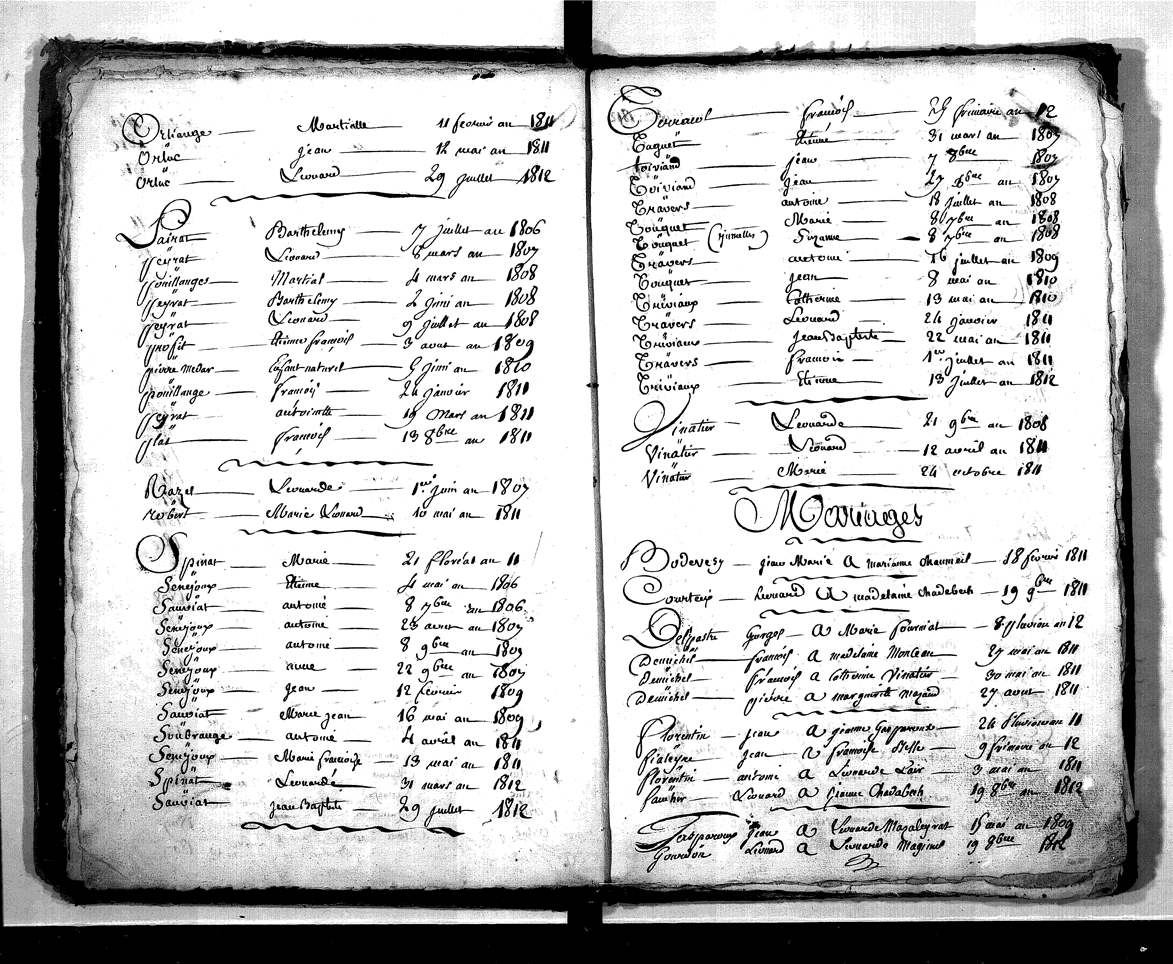 Orliange Martialle 11 fevrié an 1811
Orluc jean 12 mai an 1811
Orluc Leonard 29 juillet 1812
Barthelemy 7 juillet an 1806
Peyrat Léonard 8 mars an 1807
Pouillanges Martial 4 mars an 1808
Peyrat Barthelemy 2 juin an 1808
Peyrat Léonard 9 juillet an 1808
profit étienne françois 3 aout an 1809
pierre medar Enfant naturel juin an 1810
poüillange françois 24 janvier 1811
peyrat antoinette 19 Mars an 1811
plas françois 13 8bre an 1811
Razel Léonarde 1er juin an 1807
robert Marie Léonard 10 mai an 1811
Spinat Marie 21 floréal an 11
Senejoux Etienne 4 mai an 1806
Sauviat antoine 8 7bre an 1806
Senejoux antoine 23 avril an 1807
Senejoux antoine 8 9bre an 1807
Senejoux anne 22 9bre an 1807
Senejoux Jean 12 fevrier 1809
Sauviat Marie jean 16 mai an 1809
Soubrange antoine 4 avril an 1811
Senejoux Marie françoise 13 mai an 1811
Spinat Léonarde 31 mars an 1812
Sauviat jean Baptiste 29 juillet 1812
françois frimaire an 12
Touquet étienne 31 mars an 1807
jean 7 8bre 1807
Toiviaud jean 27 8bre an 1807
Travers antoine 18 juillet an 1808
Touquet Marie 8 7bre an 1808
Touquet (jumelles) Suzanne 8 7bre an 1808
Travers antoine 16 juillet an 1809
Touquet jean 8 mai an 1810
Triviaux Catherine 13 mai an 1810
Travers Léonard 24 janvier 1811
Triviaux jean Baptiste 22 mai an 1811
Travers francois 1er juillet an 1811
Triviaux Etienne 13 juillet an 1812
Vinatier Léonarde 21 9bre an 1808
Vinatier Léonard 12 avril an 1811
Vinatier Marie 24 octobre 1811
Mariages
Bodevesy jean Marie A marianne chaumeil 18 fevrié 1811
Courteix Léonard A madelaine chadebech 19 9bre 1811
Delpastre Gorges A Marie fourniat 8 pluviose an 12
Demichel francois A madelaine Monteau 27 mai an 1811
Demichel francois A Catherine Vinatier 30 mai an 1811
Demichel pierre A margueritte mazaud 27 aout 1811
florentin jean A jeanne Gasparoux 24 Pluviose an 11
fialeyre jean A françoise 9 frimaire an 12
florentin antoine A Léonarde Lair 3 mai an 1811
faucher Léonard A jeanne Chadebech 19 8bre an 1812
Gasparoux jean A Léonarde Mazaleyrat 15 mai an 1809
Gourdon Léonard A Léonarde Magimel 19 8bre 1812